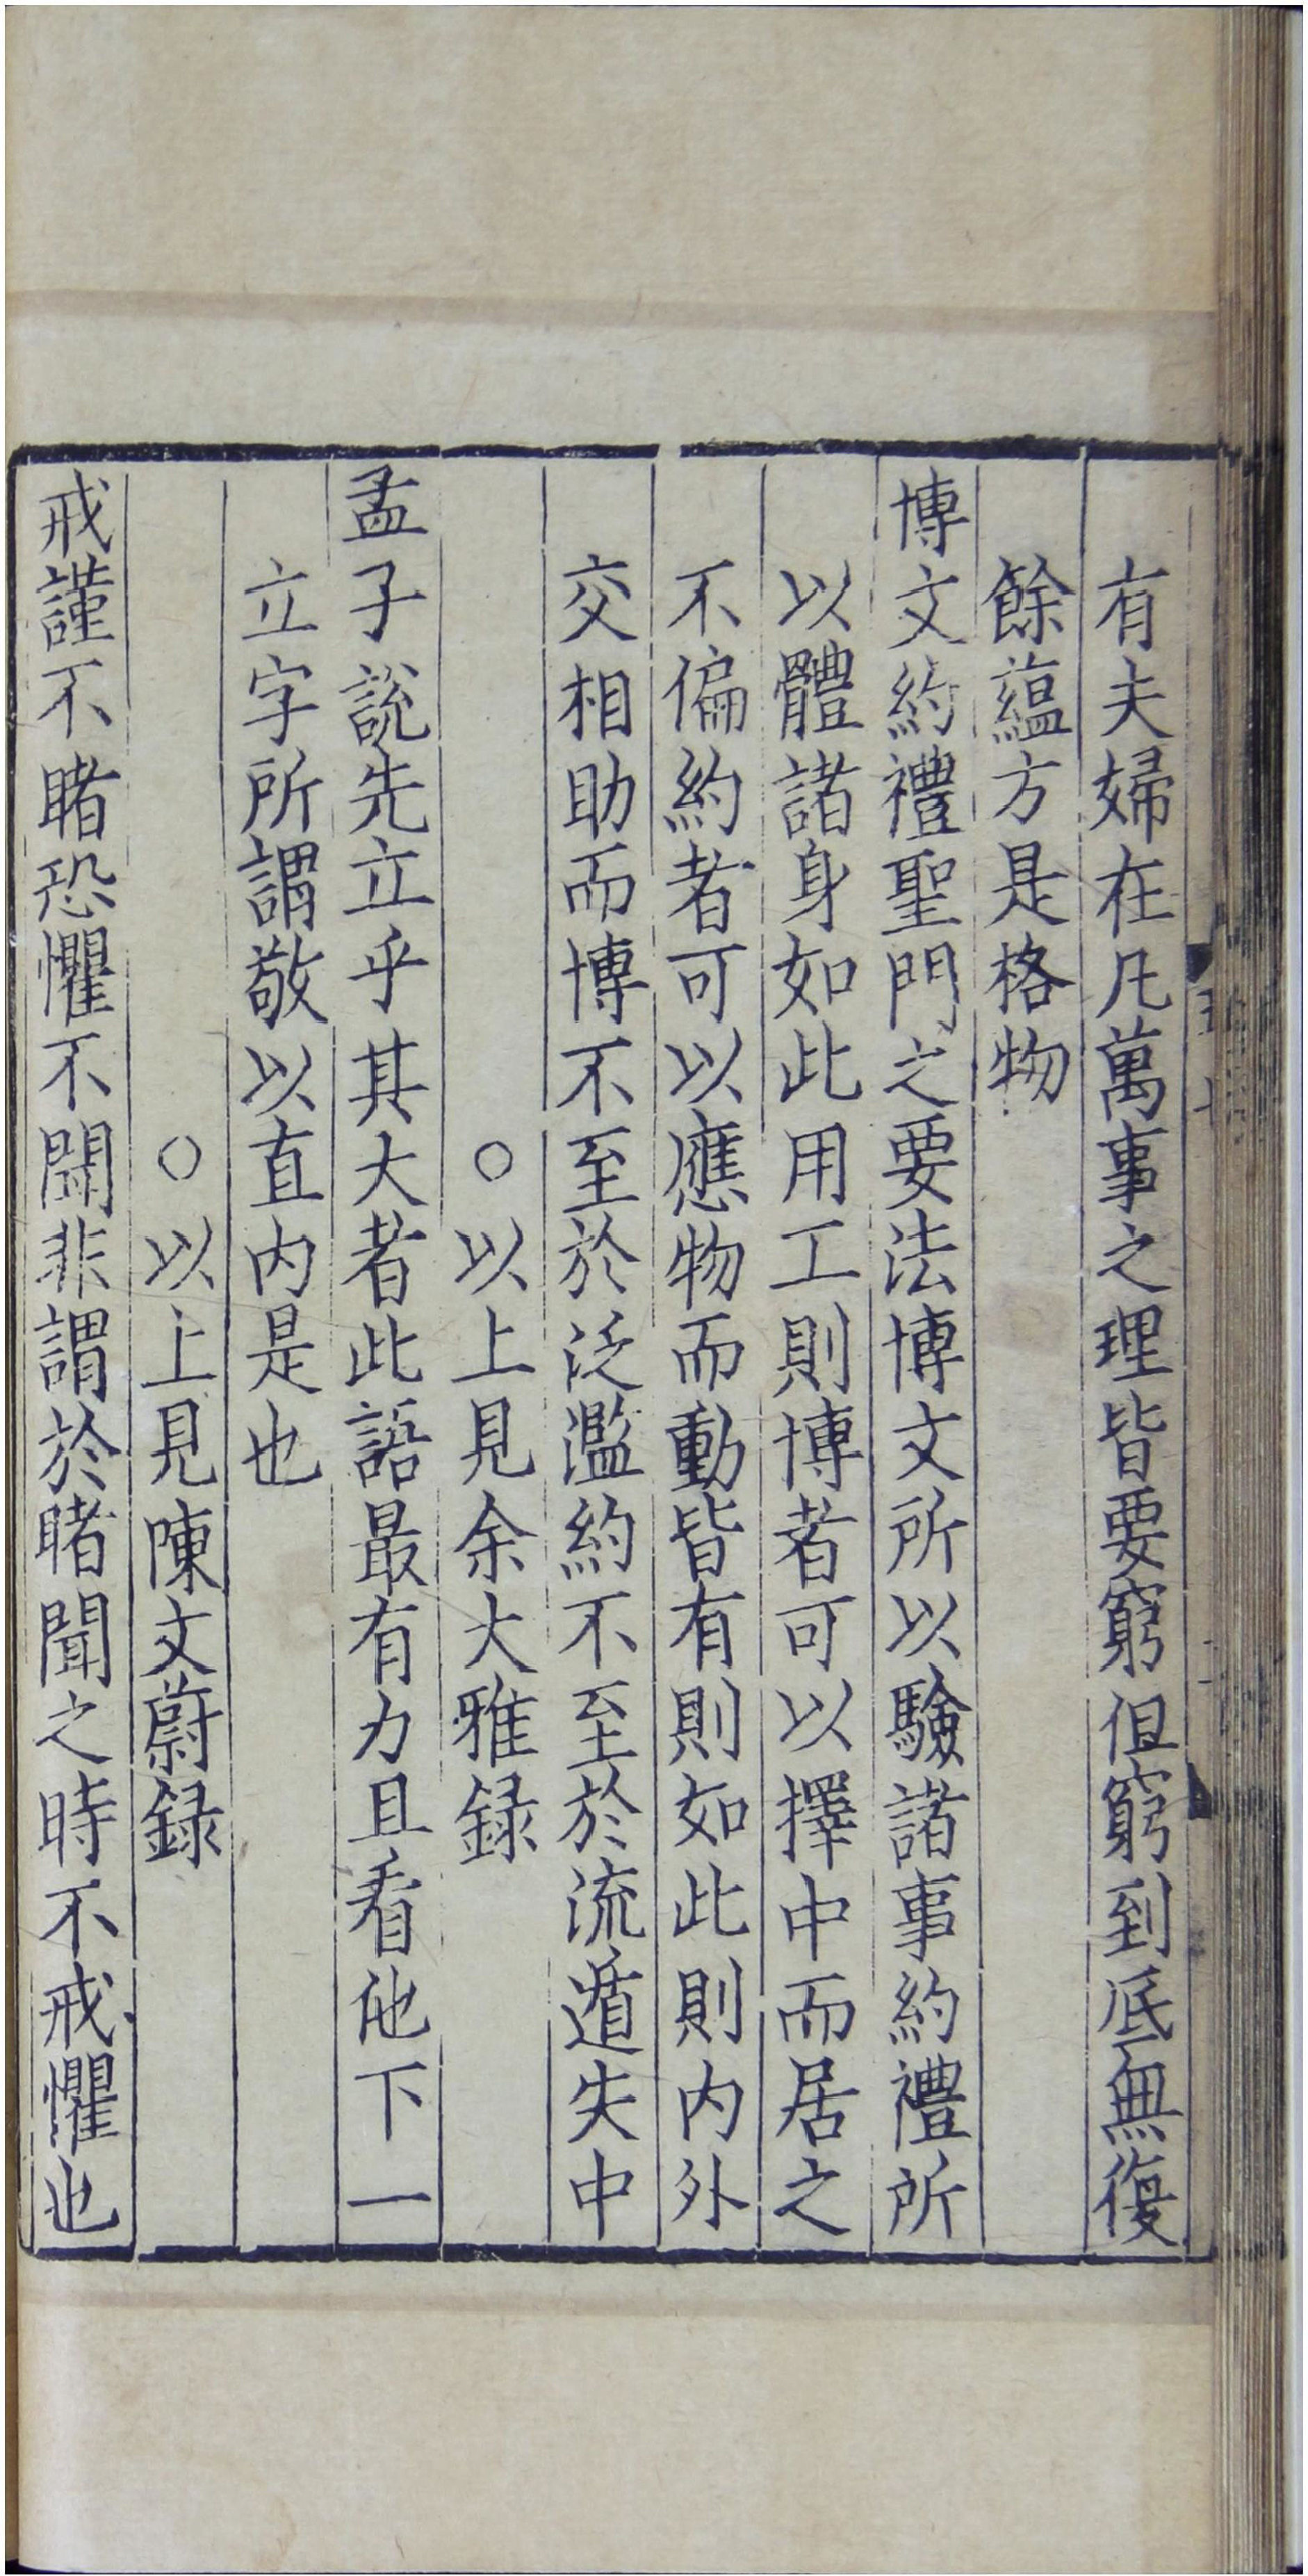 有夫婦在凡萬事之理皆要窮但窮到底無復
餘蘊方是格物
博文約禮聖門之要法博文所以驗諸事約禮所
以體諸身如此用工則博者可以擇中而居之
不偏約者可以應物而動皆有則如此則内外
交相助而博不至於泛濫約不至於流遁失中
○以上見余大雅録
孟子說先立乎其大者此語最有力且看他下一
立字所謂敬以直内是也
○以上見陳文蔚録
戒謹不睹恐懼不聞非謂於睹聞之時不戒懼也